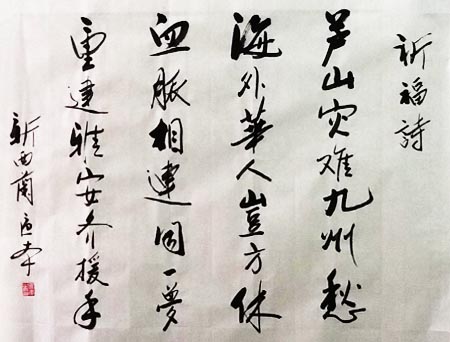 祈福詩
芦山灾难九州愁
海外華人豈方休
血脈相連同一夢
重建雅安齐援手
新西蘭